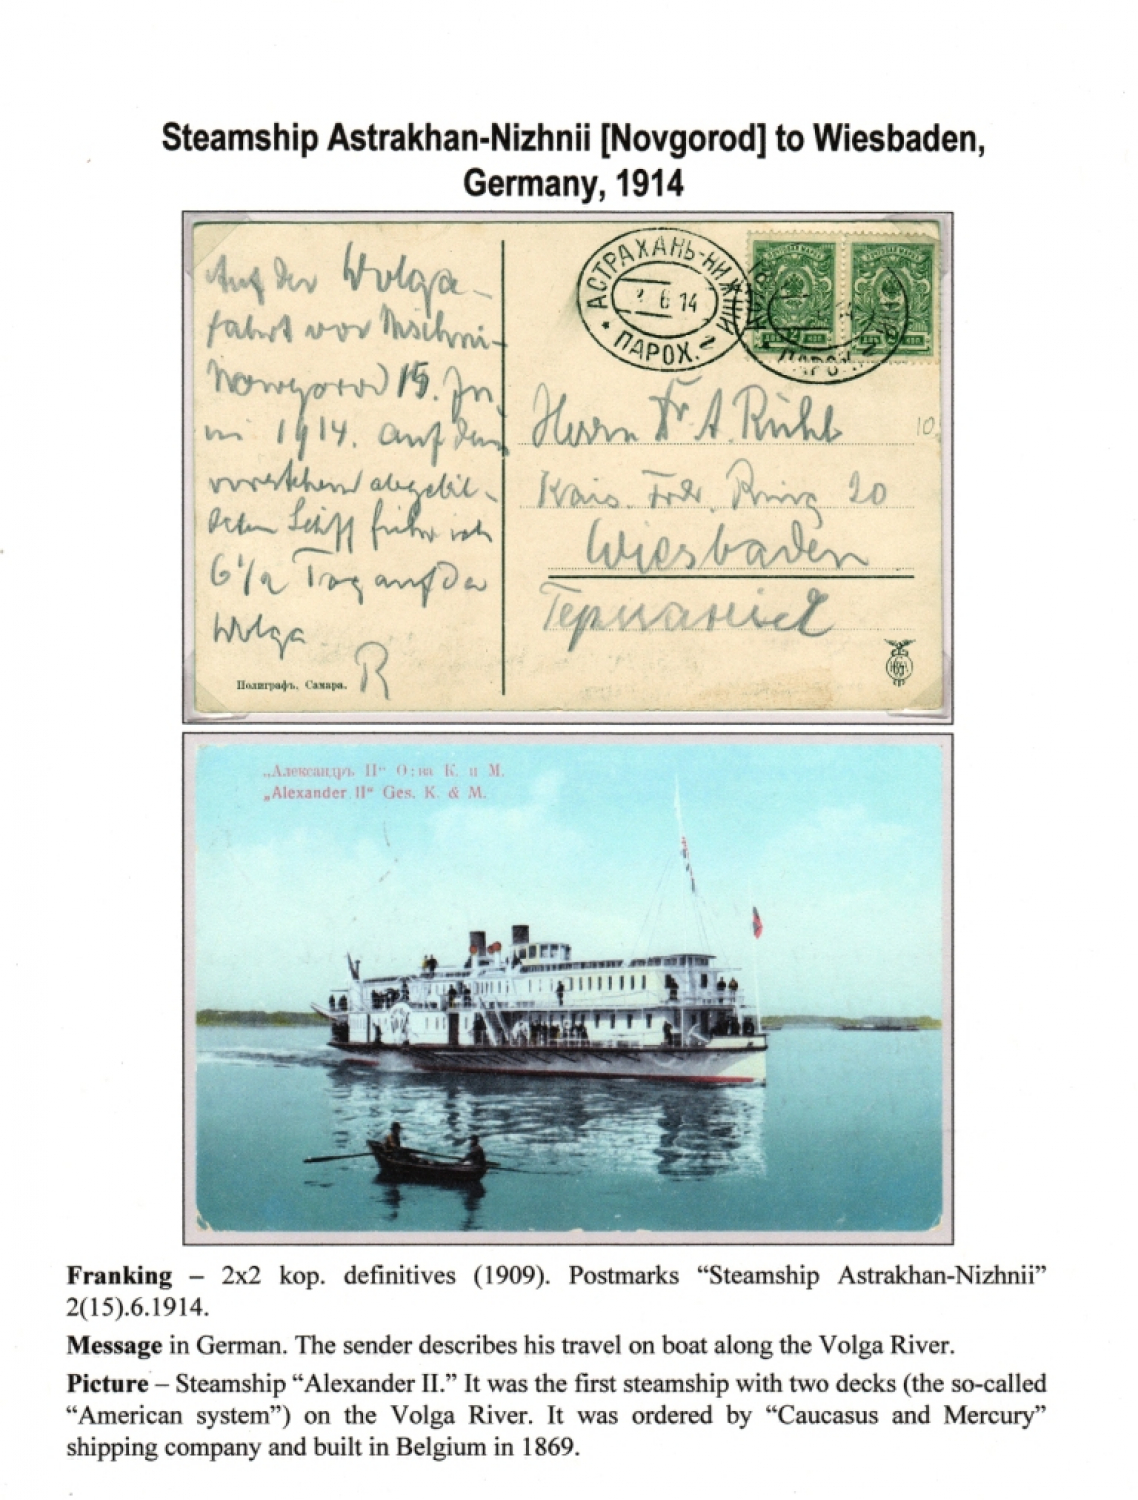 Steamship Astrakhan-Nizhnii [Novgorod] to Wiesbaden,
Germany, 1914
Auf der Wolga-
fahrt vor Nischni-
Nowgorod 15. Ju-
ni 1914. Auf dem
vorstehend abgebil-
deten Schiff fuhr ich
6 1/2 Tag auf der
Wolga
R
Полиграфъ. Самара.
АСТРАХАНЬ-НИЖНІЙ
6 14
ПАРОХ.
ПОЧТОВАЯ МАРКА
2
ДВѢ КОП.
ПОЧТОВАЯ МАРКА
ДВѢ КОП.
ПАРОХ.
10
Herrn Dr. A. Rühl
Kais. Frdr. Ring 20
Wiesbaden
Германия
„Александръ II“ О-ва К. и М.
„Alexander II“ Ges. K. & M.
Franking – 2x2 kop. definitives (1909). Postmarks “Steamship Astrakhan-Nizhnii”
2(15).6.1914.
Message in German. The sender describes his travel on boat along the Volga River.
Picture – Steamship “Alexander II.” It was the first steamship with two decks (the so-called
“American system”) on the Volga River. It was ordered by “Caucasus and Mercury”
shipping company and built in Belgium in 1869.